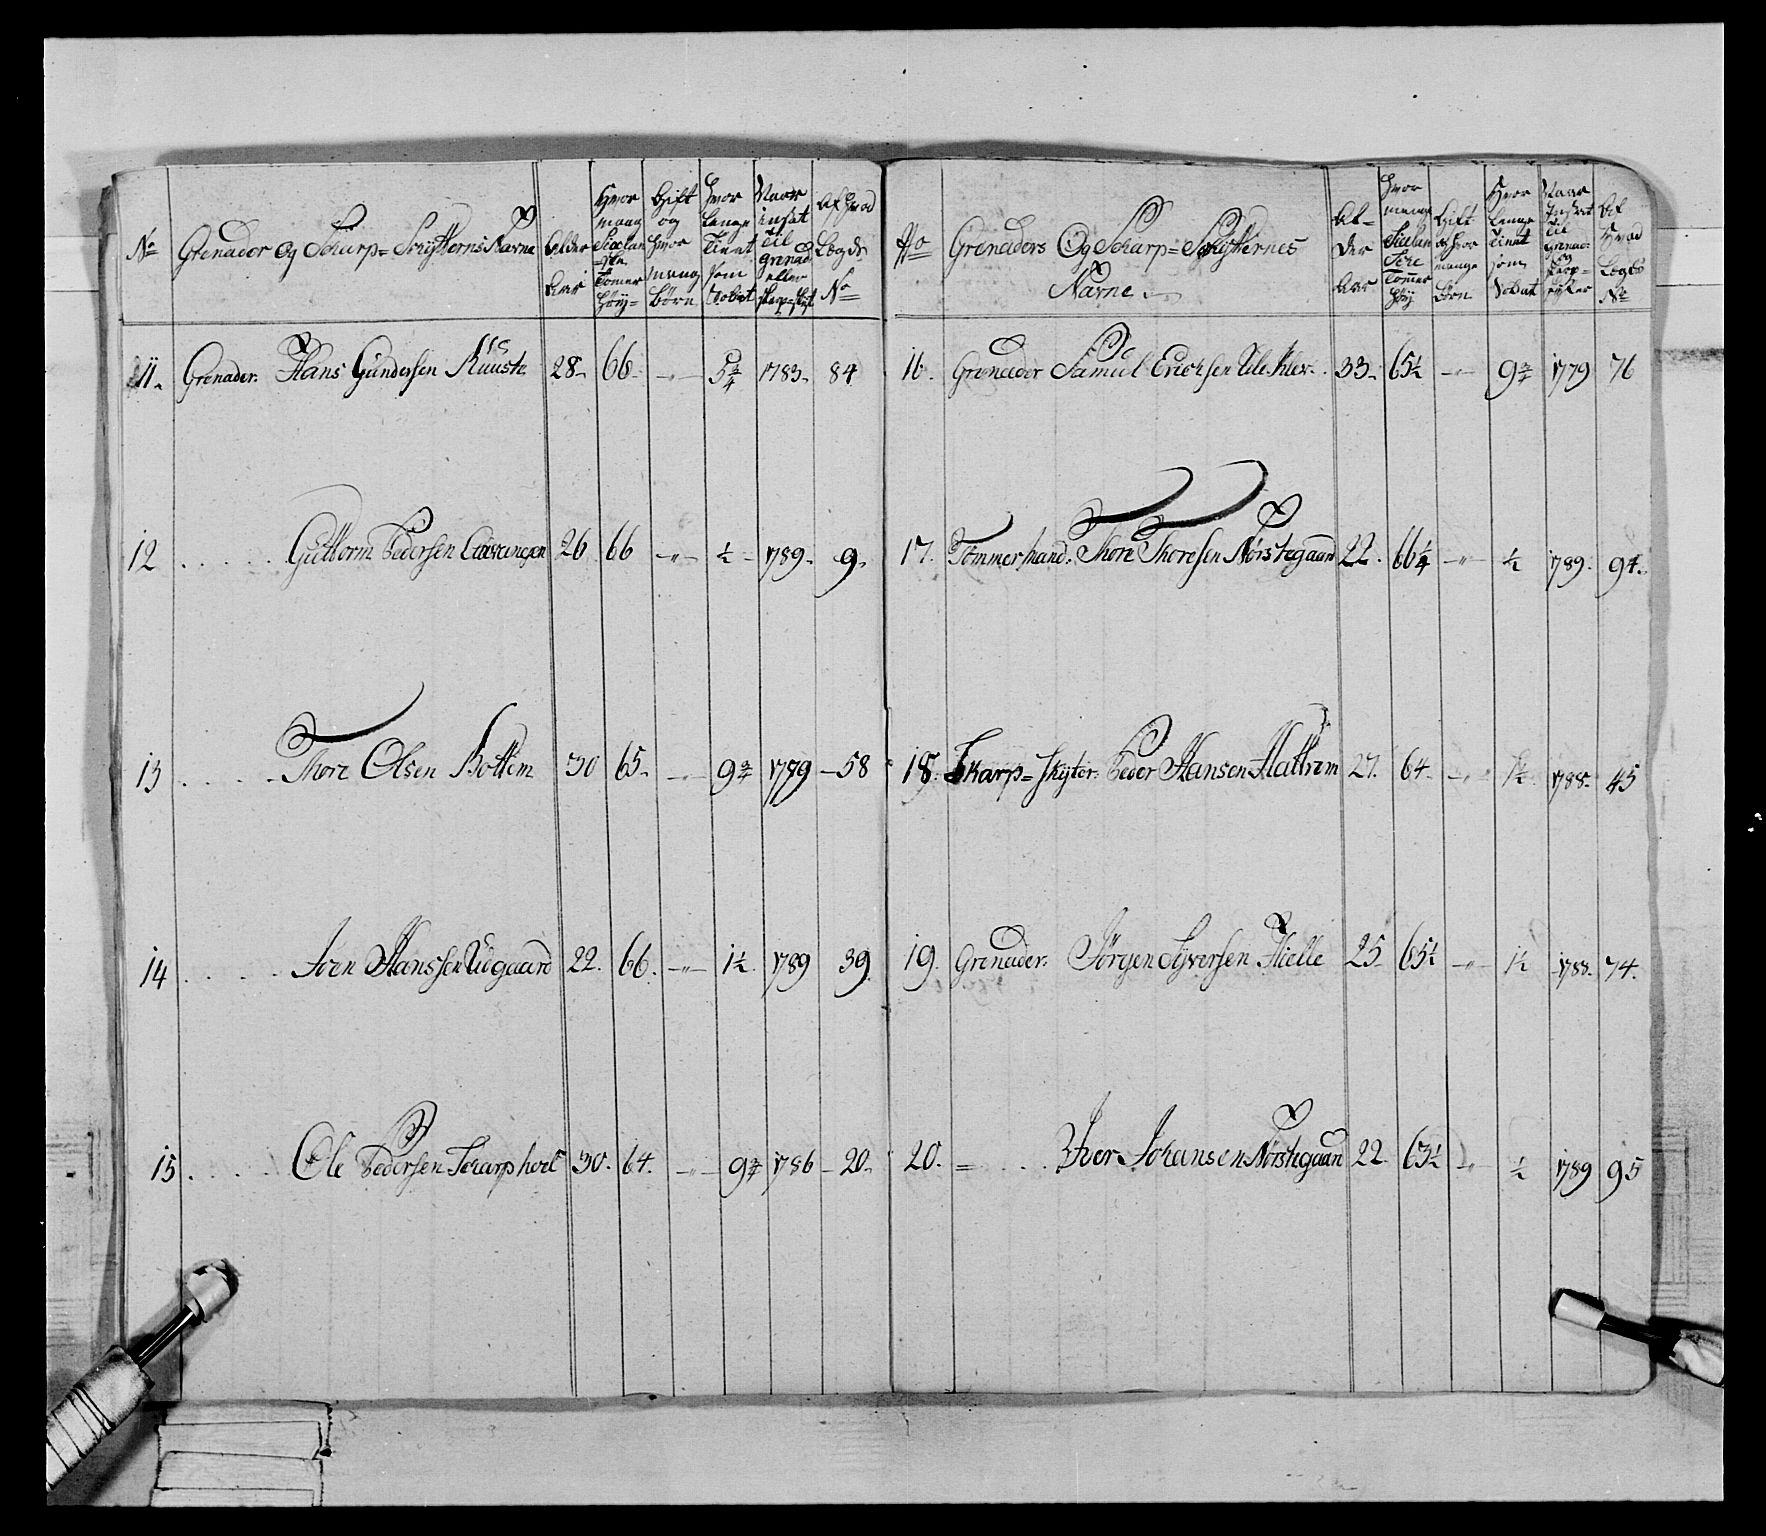 No Grenader Og Scharp=Scrytternes Navne Alder Aar Hvor mang Siælan ske Tomer Høy= Gift og Hvor mang børn Hvor Længe Tient som Soldat Naar indsat til Grenad eller skarp=skyt Af Hvad Lægds No
11. Grenader. Hans Gundersen Ruuste 28. 66. -"- 5 3/4 1783. 84
12 . . . . . Guttorm Pedersen 26 66 -"- 1/2 1789. 9.
13 . . . . . Thore Olsen Bottem 30 65. -"- 9 3/4 1779 58
14 . . . . . Joen Hanssen Udgaard 22. 66. -"- 1 1/2. 1789 39.
15. . . . . Ole Pedersen Scharphoel 30. 64. -"- 9 3/4 1786 20.
No Grenaders Og Scharp=Skytternes Navne Al=der Aar Hvor mange Siælanske Tommer Høy Gift og Hvor mange Børn Hvor Længe tient som Soldat Naar Indsat til Grenad: og skarp=skytter Af Hvad Lægds No
16. Grenader Samuel Ericksen Uleklev. 33. 65 1/2 -"- 9 3/4 1779 76
17. Tømmermand. Thore Thoresen Nørstegaard 22. 66 1/4 -"- 1/2 1789. 94.
18. Skarp=skyter. Peder Hansen Hattrem 27. 64. -"- 1 1/2 1788. 45
19. Grenader. Jørgen Syversen Hielle 25 65 1/2 -"- 1 1/2 1788. 74.
20. = . . . Iver Johansen Nørstegaard 22. 63 1/2 -"- 1/2 1789 95